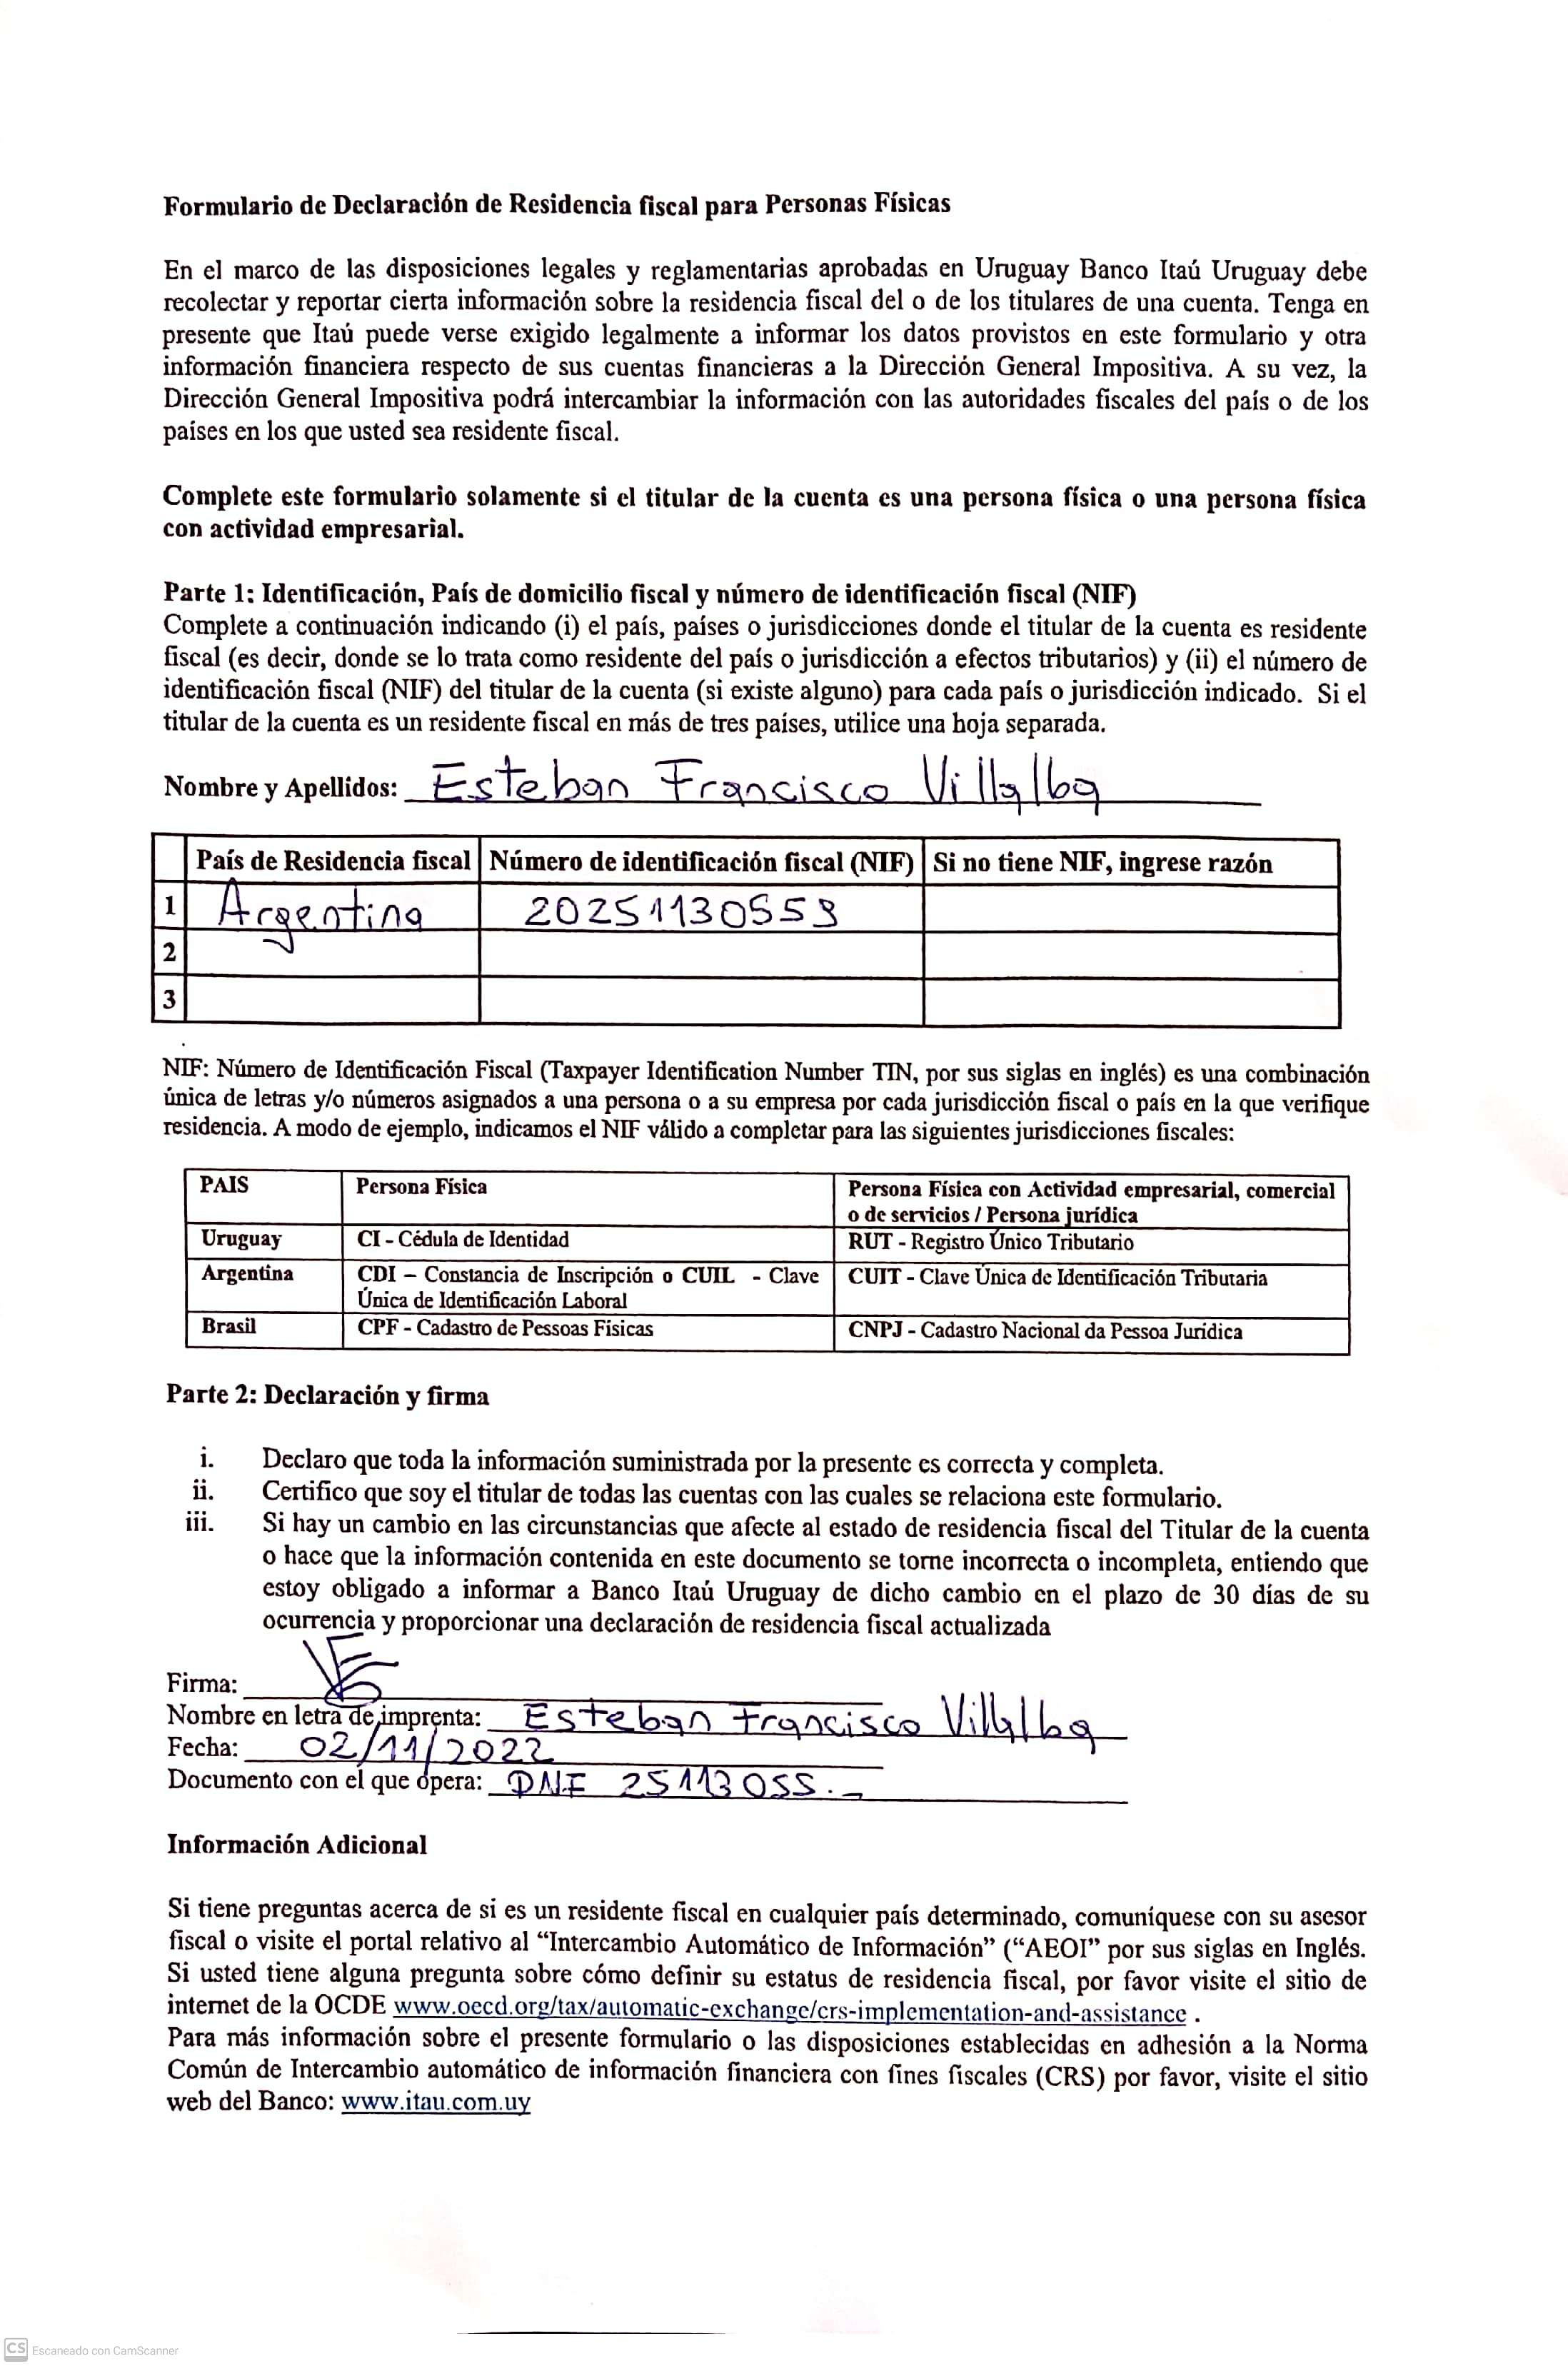 Formulario de Declaración de Residencia fiscal para Personas Físicas
En el marco de las disposiciones legales y reglamentarias aprobadas en Uruguay Banco Itaú Uruguay debe
recolectar y reportar cierta información sobre la residencia fiscal del o de los titulares de una cuenta. Tenga en
presente que Itaú puede verse exigido legalmente a informar los datos provistos en este formulario y otra
información financiera respecto de sus cuentas financieras a la Dirección General Impositiva. A su vez, la
Dirección General Impositiva podrá intercambiar la información con las autoridades fiscales del país o de los
países en los que usted sea residente fiscal.
Complete este formulario solamente si el titular de la cuenta es una persona física o una persona física
con actividad empresarial.
Parte 1: Identificación, País de domicilio fiscal y número de identificación fiscal (NIF)
Complete a continuación indicando (i) el país, países o jurisdicciones donde el titular de la cuenta es residente
fiscal (es decir, donde se lo trata como residente del país o jurisdicción a efectos tributarios) y (ii) el número de
identificación fiscal (NIF) del titular de la cuenta (si existe alguno) para cada país o jurisdicción indicado. Si el
titular de la cuenta es un residente fiscal en más de tres países, utilice una hoja separada.
Nombre y Apellidos: Esteban Francisco Villalba
País de Residencia fiscal Número de identificación fiscal (NIF) Si no tiene NIF, ingrese razón
1 Argentina 20251130559
2
3
NIF: Número de Identificación Fiscal (Taxpayer Identification Number TIN, por sus siglas en inglés) es una combinación
única de letras y/o números asignados a una persona o a su empresa por cada jurisdicción fiscal o país en la que verifique
residencia. A modo de ejemplo, indicamos el NIF válido a completar para las siguientes jurisdicciones fiscales:
PAIS Persona Física Persona Física con Actividad empresarial, comercial
o de servicios / Persona jurídica
Uruguay CI - Cédula de Identidad RUT - Registro Único Tributario
Argentina CDI – Constancia de Inscripción o CUIL - Clave CUIT - Clave Única de Identificación Tributaria
Única de Identificación Laboral
Brasil CPF - Cadastro de Pessoas Físicas CNPJ - Cadastro Nacional da Pessoa Jurídica
Parte 2: Declaración y firma
i. Declaro que toda la información suministrada por la presente es correcta y completa.
ii. Certifico que soy el titular de todas las cuentas con las cuales se relaciona este formulario.
iii. Si hay un cambio en las circunstancias que afecte al estado de residencia fiscal del Titular de la cuenta
o hace que la información contenida en este documento se torne incorrecta o incompleta, entiendo que
estoy obligado a informar a Banco Itaú Uruguay de dicho cambio en el plazo de 30 días de su
ocurrencia y proporcionar una declaración de residencia fiscal actualizada
Firma:
Nombre en letra de imprenta: Esteban Francisco Villalba
Fecha: 02/11/2022
Documento con el que opera: DNI 25113055.-
Información Adicional
Si tiene preguntas acerca de si es un residente fiscal en cualquier país determinado, comuníquese con su asesor
fiscal o visite el portal relativo al “Intercambio Automático de Información” (“AEOI” por sus siglas en Inglés.
Si usted tiene alguna pregunta sobre cómo definir su estatus de residencia fiscal, por favor visite el sitio de
internet de la OCDE www.oecd.org/tax/automatic-exchange/crs-implementation-and-assistance .
Para más información sobre el presente formulario o las disposiciones establecidas en adhesión a la Norma
Común de Intercambio automático de información financiera con fines fiscales (CRS) por favor, visite el sitio
web del Banco: www.itau.com.uy
CS Escaneado con CamScanner